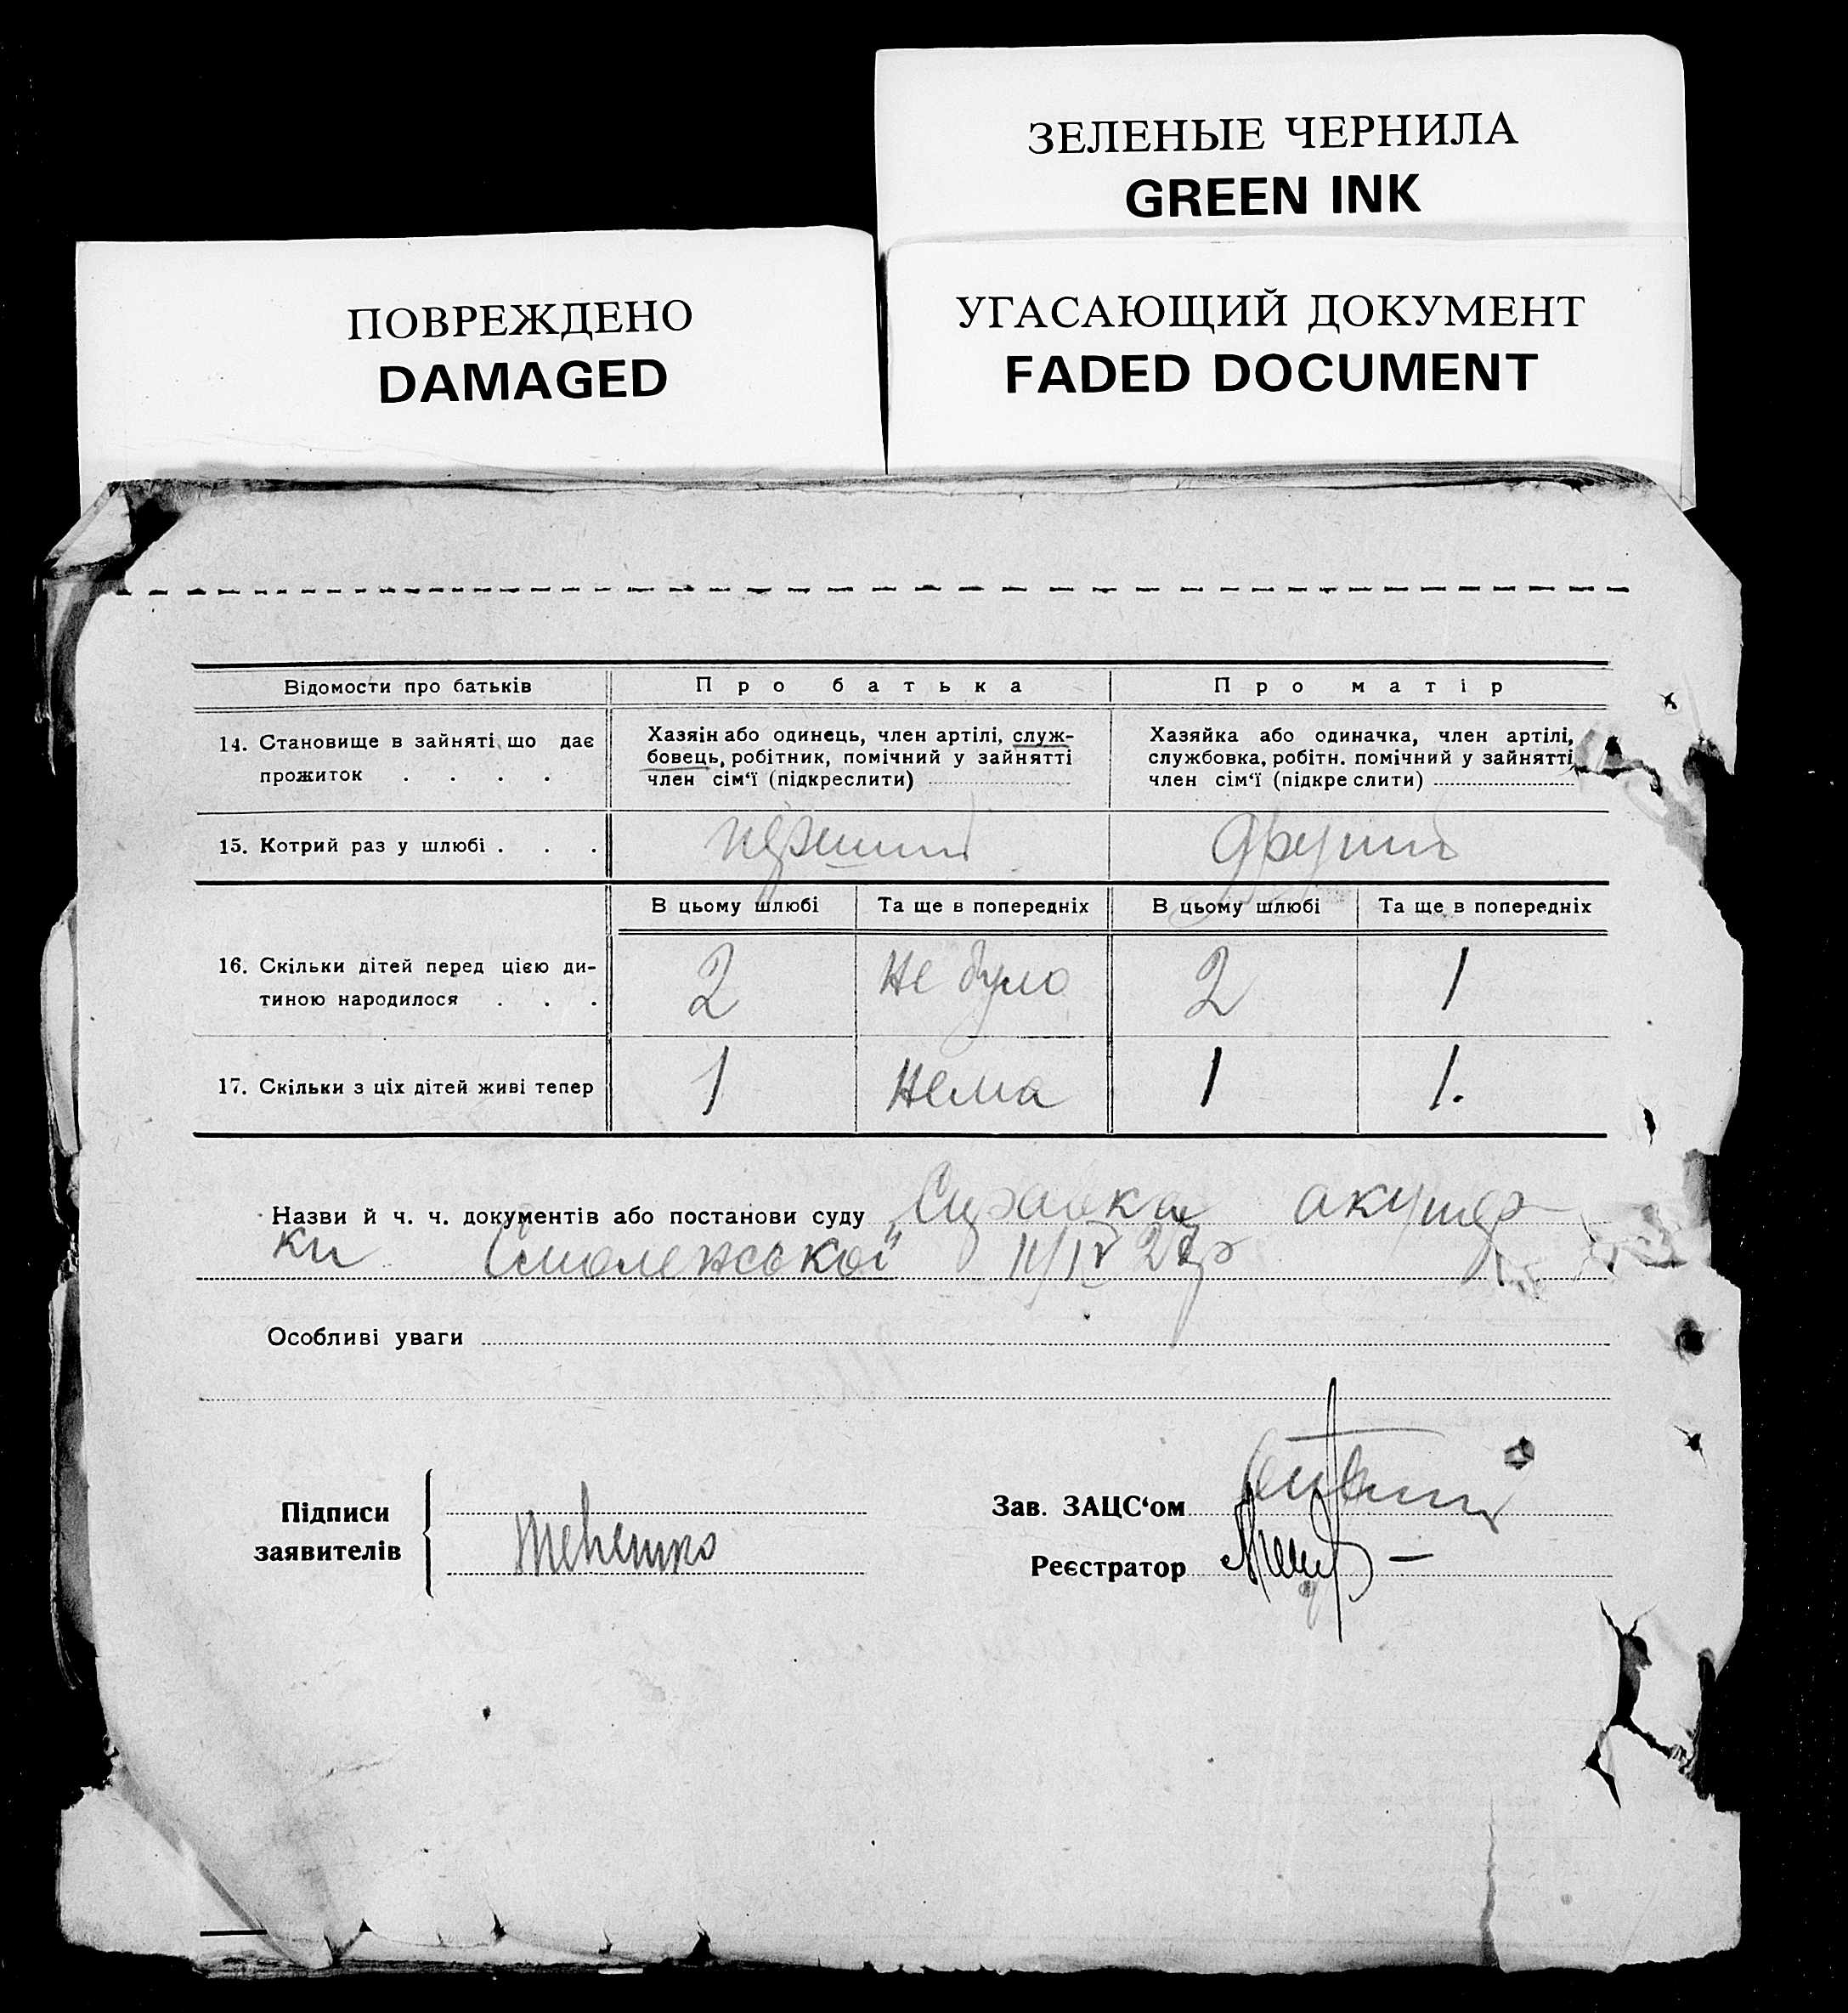 ЗЕЛЕНЫЕ ЧЕРНИЛА
GREEN INK
ПОВРЕЖДЕНО
DAMAGED
УГАСАЮЩИЙ ДОКУМЕНТ
FADED DOCUMENT
Відомости про батьків Про батька Про матір
14. Становище в зайняті що дає прожиток . . . .
Хазяїн або одинець, член артілі, служ-
бовець, робітник, помічний у зайнятті
член сім‘ї (підкреслити)
Хазяйка або одиначка, член артілі,
службовка, робітн. помічний у зайнятті
член сім‘ї (підкреслити)
15. Котрий раз у шлюбі . . . перший другий
В цьому шлюбі Та ще в попередніх В цьому шлюбі Та ще в попередніх
16. Скільки дітей перед цією ди-
тиною народилося . . . 2 Не було 2 1
17. Скільки з ціх дітей живі тепер 1 Нема 1 1.
Назви й ч. ч. документів або постанови суду Справка акушер
ки Смоленської 11/IV
Особливі уваги
Підписи
заявителів
Зав. ЗАЦС‘ом
Реєстратор